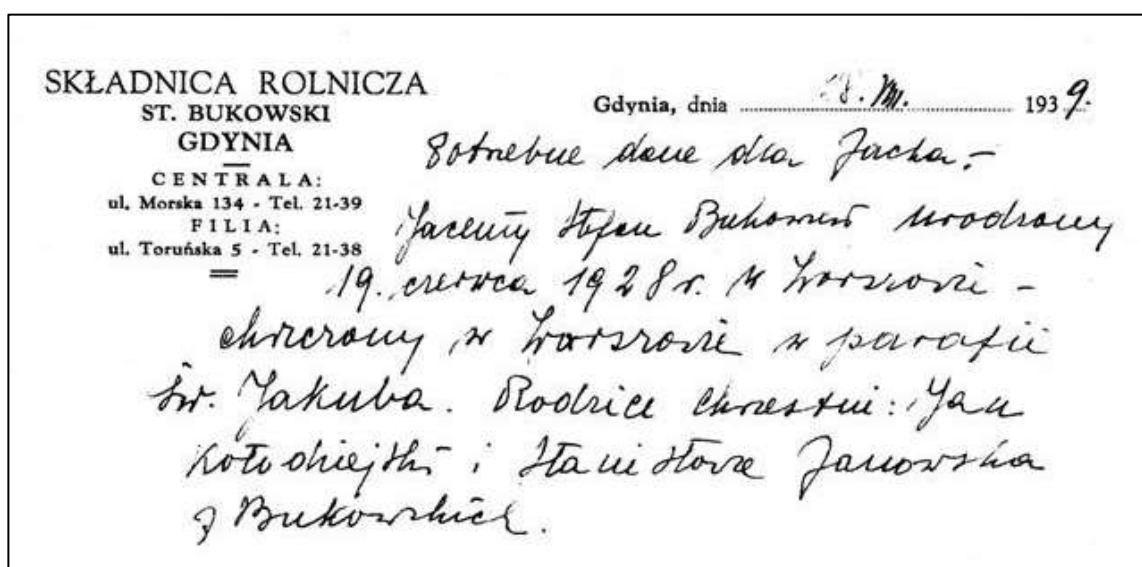 SKŁADNICA ROLNICZA
ST. BUKOWSKI
GDYNIA
CENTRALA:
ul. Morska 134 - Tel. 21-39
FILIA:
ul. Toruńska 5 - Tel. 21-38
Gdynia, dnia VIII. 1939.
Potrzebne dane dla Jacka. -
Jacenty Stefan Bukowski urodzony
19. czerwca 1928 r. w Warszawie -
chrzczony w Warszawie w parafii
św. Jakuba. Rodzice chrzestni: Jan
Kołodziejski i Stanisława Janowska
z Bukowskich.